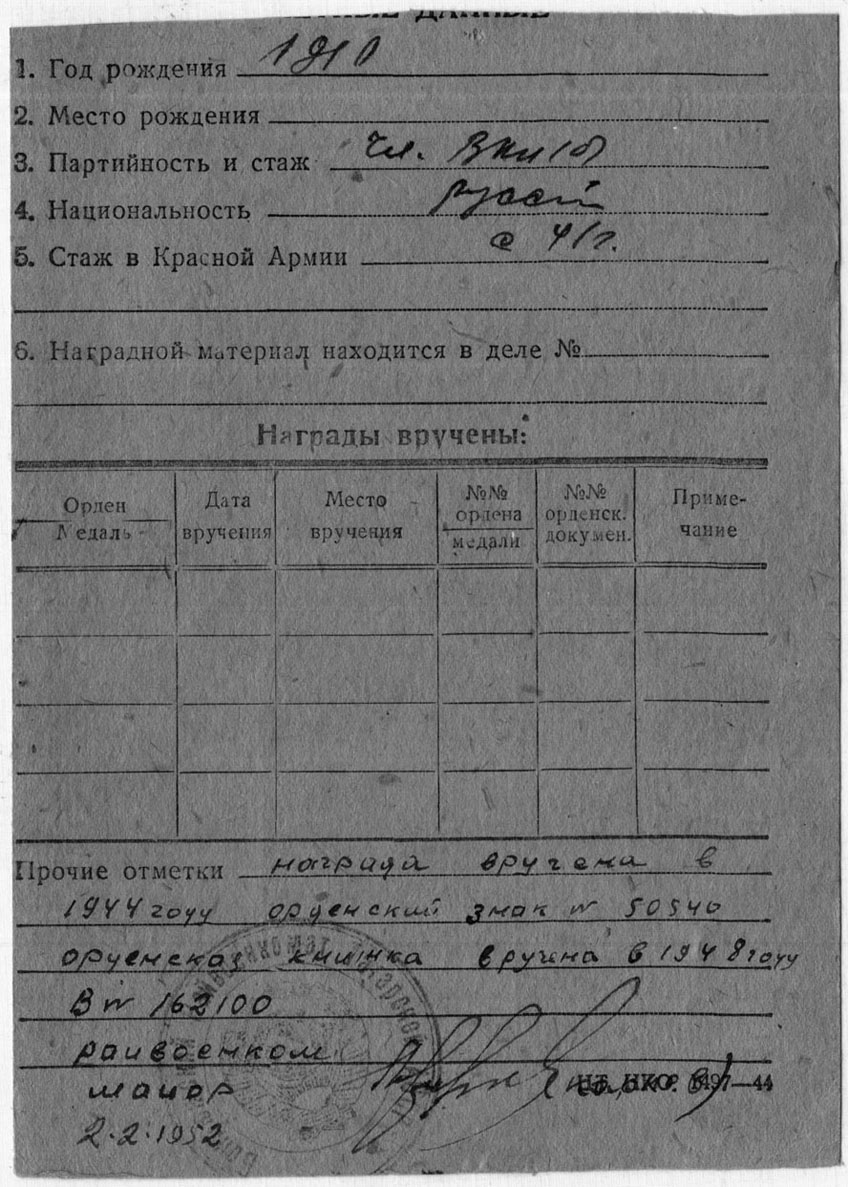 ДАННЫЕ
1. Год рождения 1910
2. Место рождения
3. Партийность и стаж чл. ВКП(б)
4. Национальность русский
5. Стаж в Красной Армии с 41 г.
6. Наградной материал находится в деле №
Награды вручены:
Орден Медаль
Дата вручения
Место вручения
№№ ордена медали
№№ орденск. докумен.
Приме-чание
Прочие отметки награда вручена в
1944 году орденский знак № 50540
орденская книжка вручена в 1948 году
В № 162100
райвоенком
майор
НКО 97—44
2.2.1952